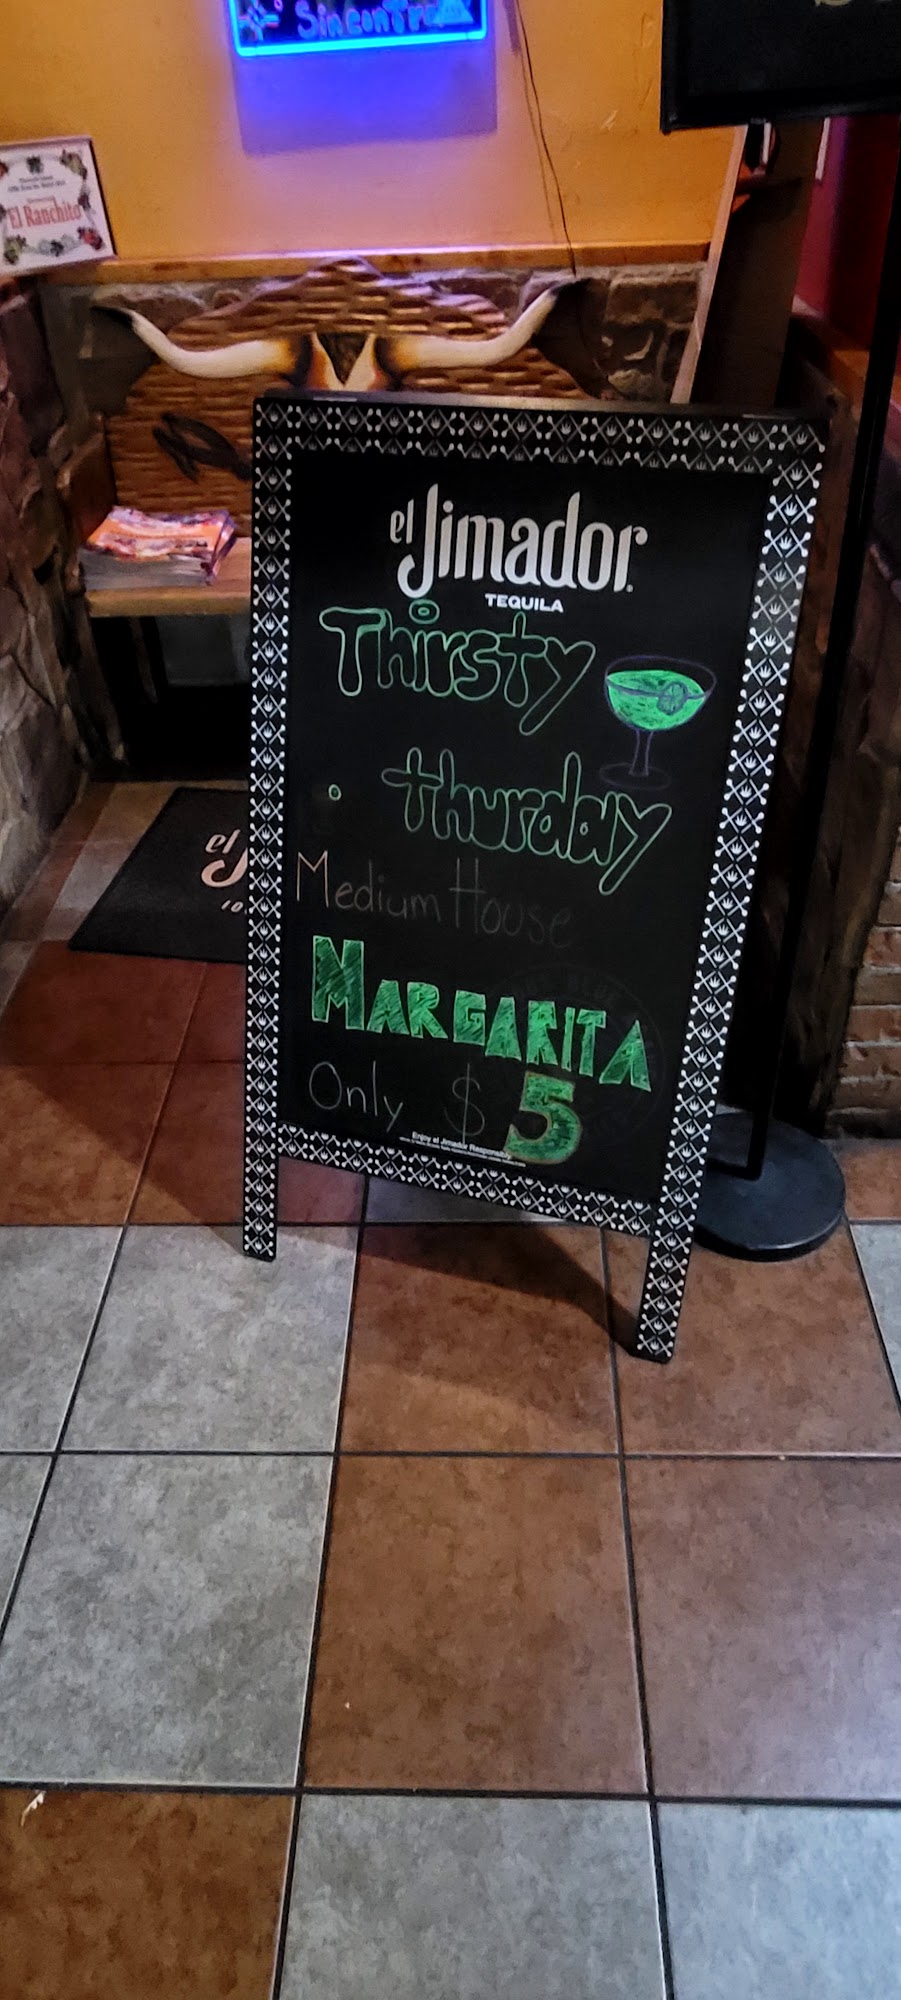 Sincontra
El Ranchito
el Jimador
TEQUILA
Thirsty
thurday
Medium House
MARGARITA
Only $ 5
Enjoy el Jimador Responsibly.
el J